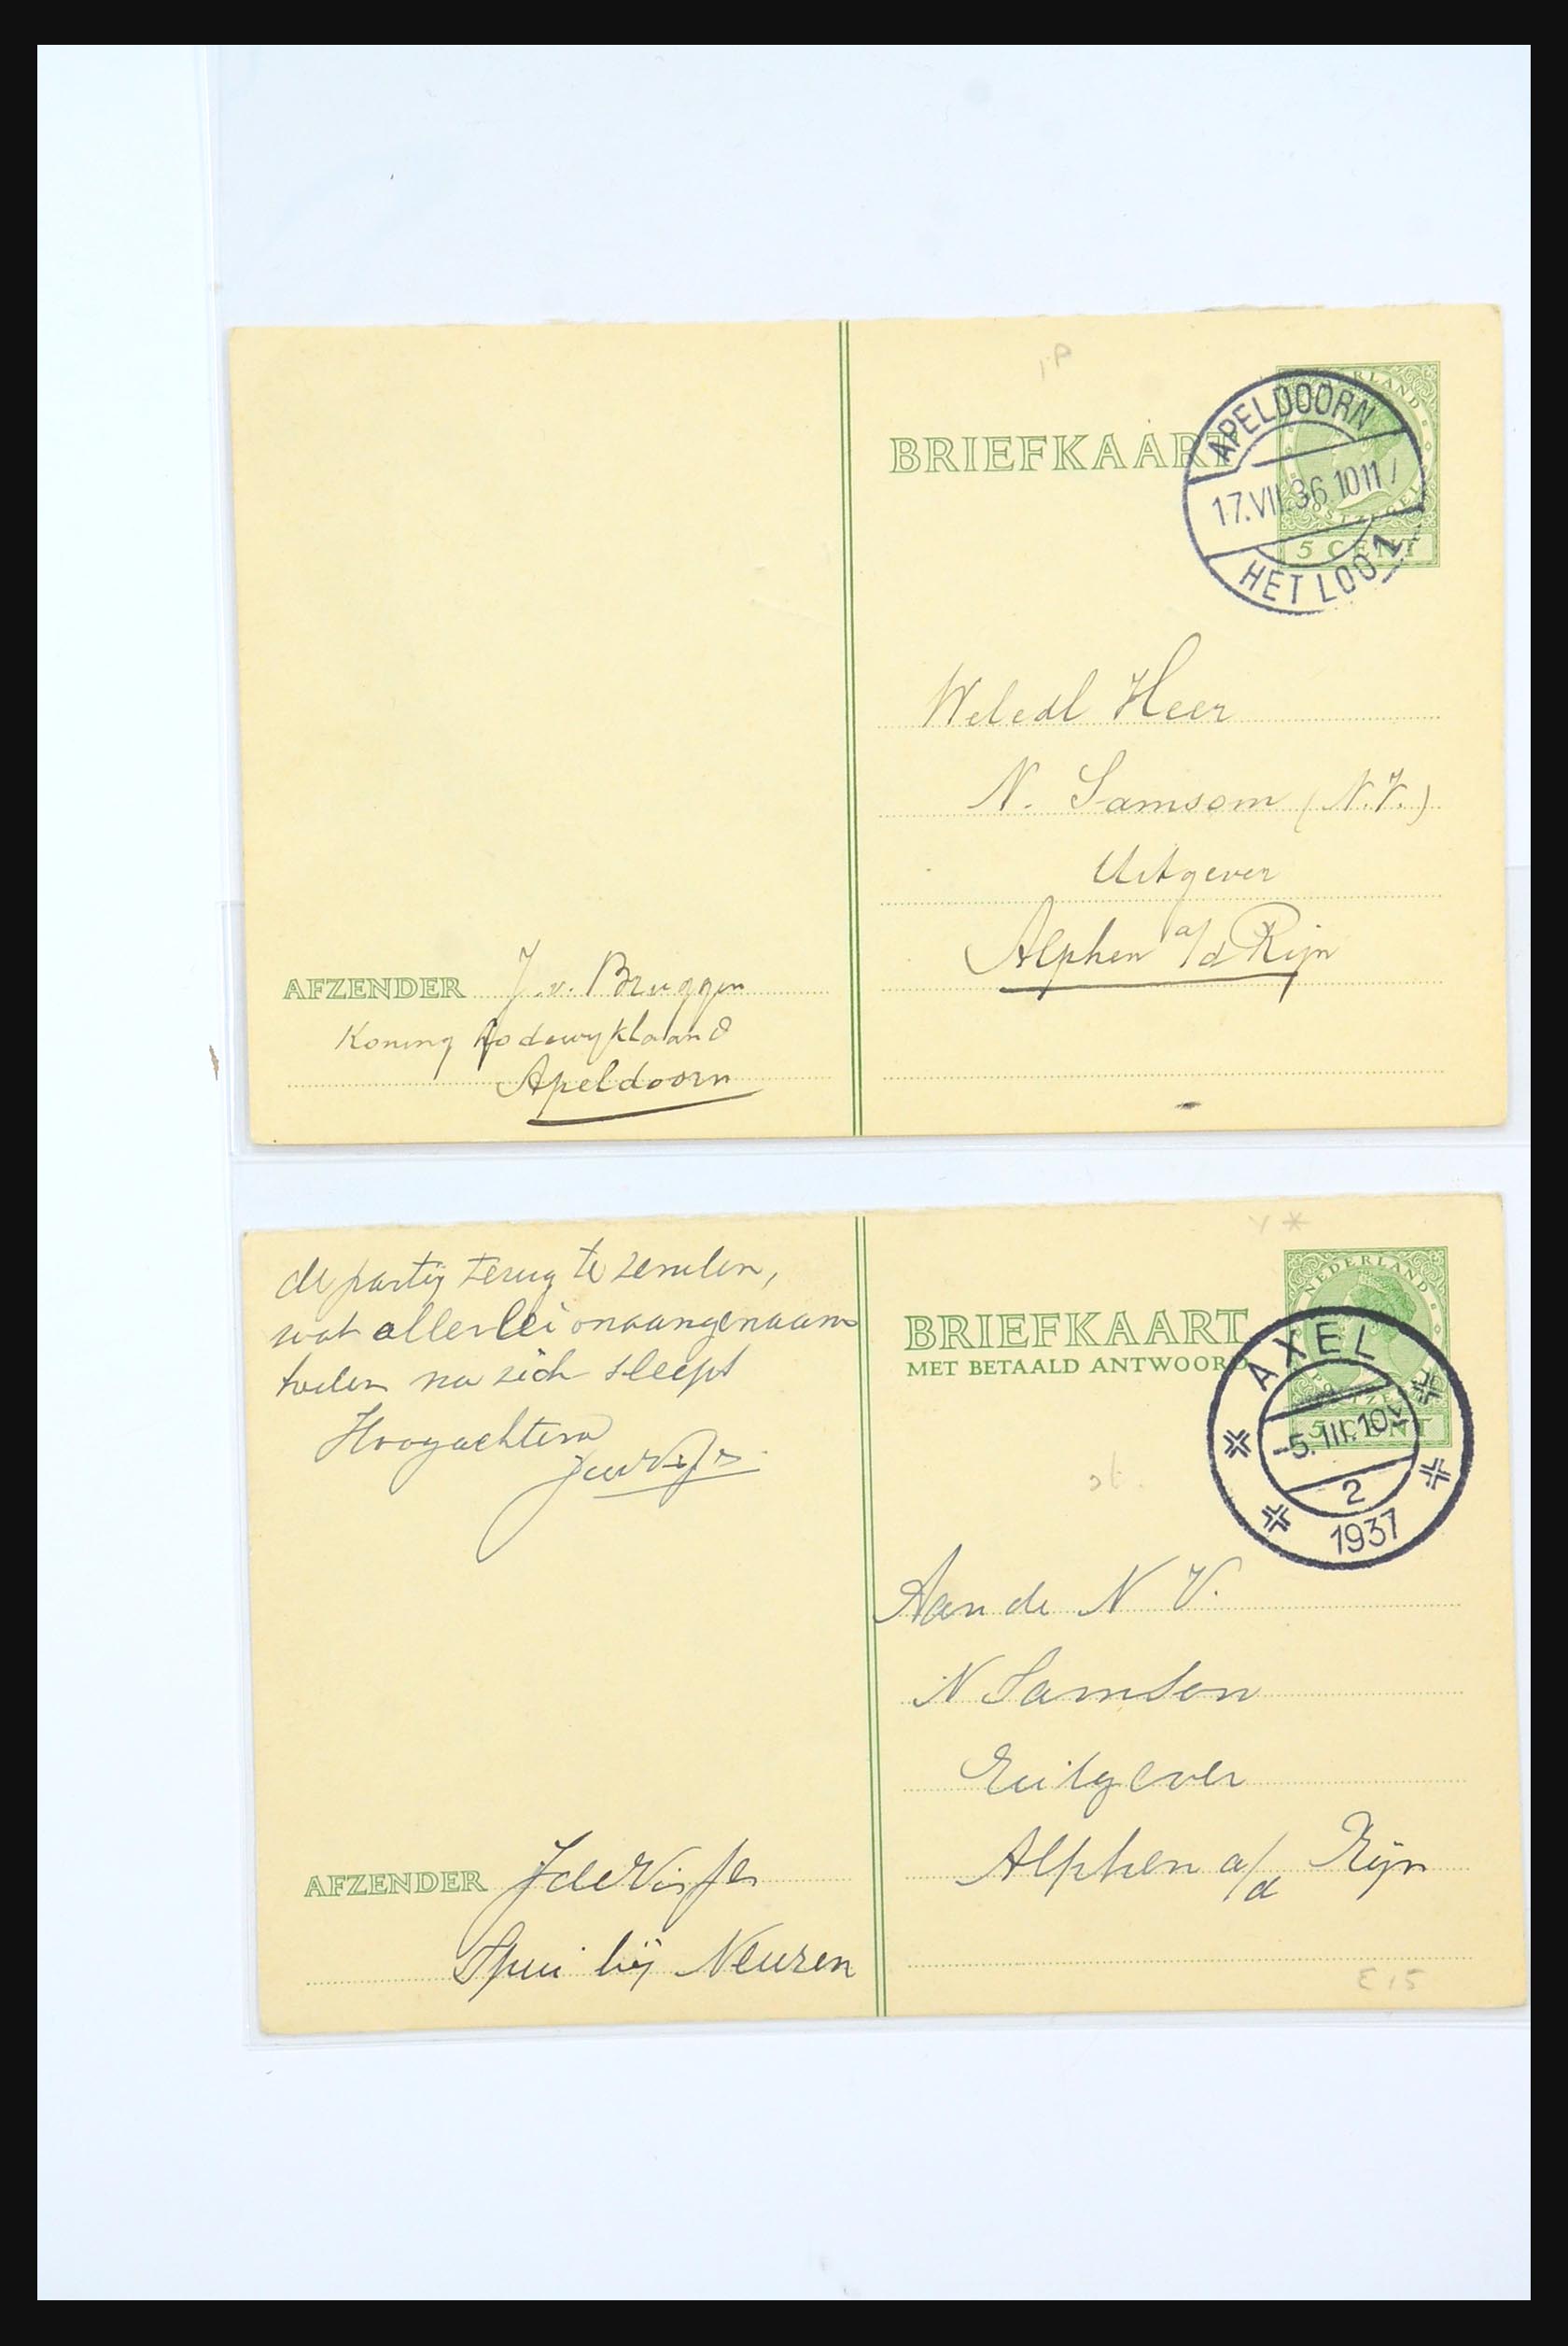 BRIEFKAART
NEDERLAND
5 CENT
APELDOORN
17.VII.36.1011
HET LOO 1
Weledl Heer
N. Samsom (N.V.)
Uitgever
Alphen a/d Rijn
AFZENDER J. v. Bruggen
Koning Lodewyklaan 8
Apeldoorn
de partij terug te zenden,
wat allerlei onaangenaam
heden na zich sleept
Hoogachtend
BRIEFKAART
MET BETAALD ANTWOORD
NEDERLAND
5 CENT
AXEL
-5.III.10V
2
1937
Aan de N V.
N Samson
Euitgever
Alphen a/d Rijn
AFZENDER J de Visser
Spui bij Neuzen
E 15